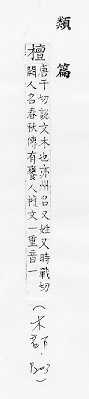 類篇
檀唐干切說文木也亦州名又姓又時戰切
闕人名春秋傳有饔人檀文一重音一
(木部,